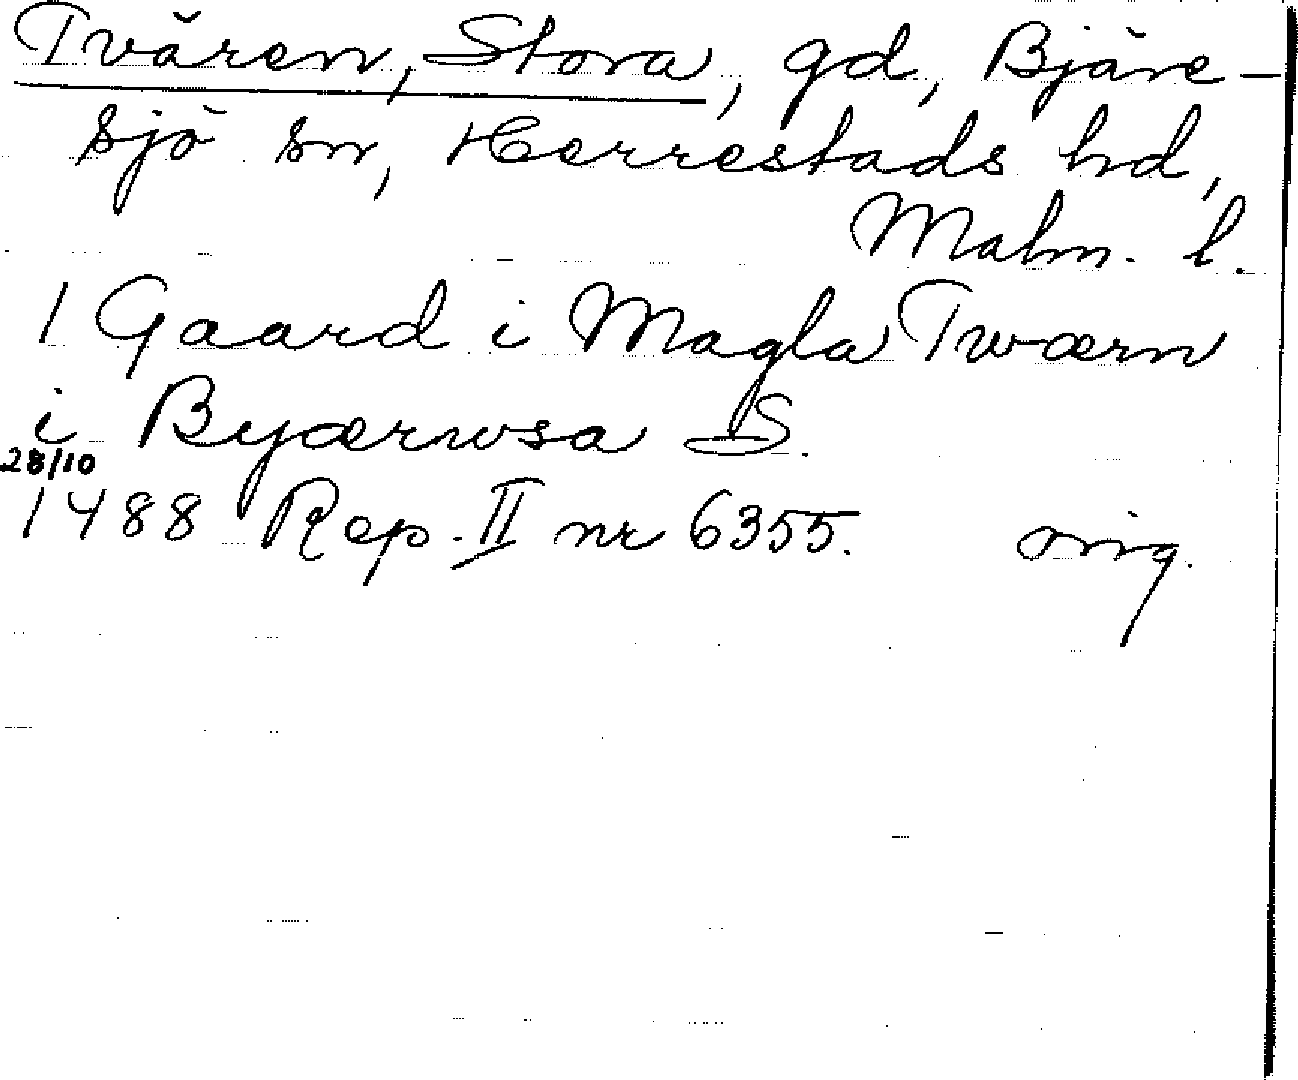 Tvären, Stora, gd, Bjäre-
sjö sn, Herrestads hd,
Malm. l.
1 Gaard i Magla Twærn
i Byærwsa S.
28/10
1488 Rep. II nr 6355. orig.